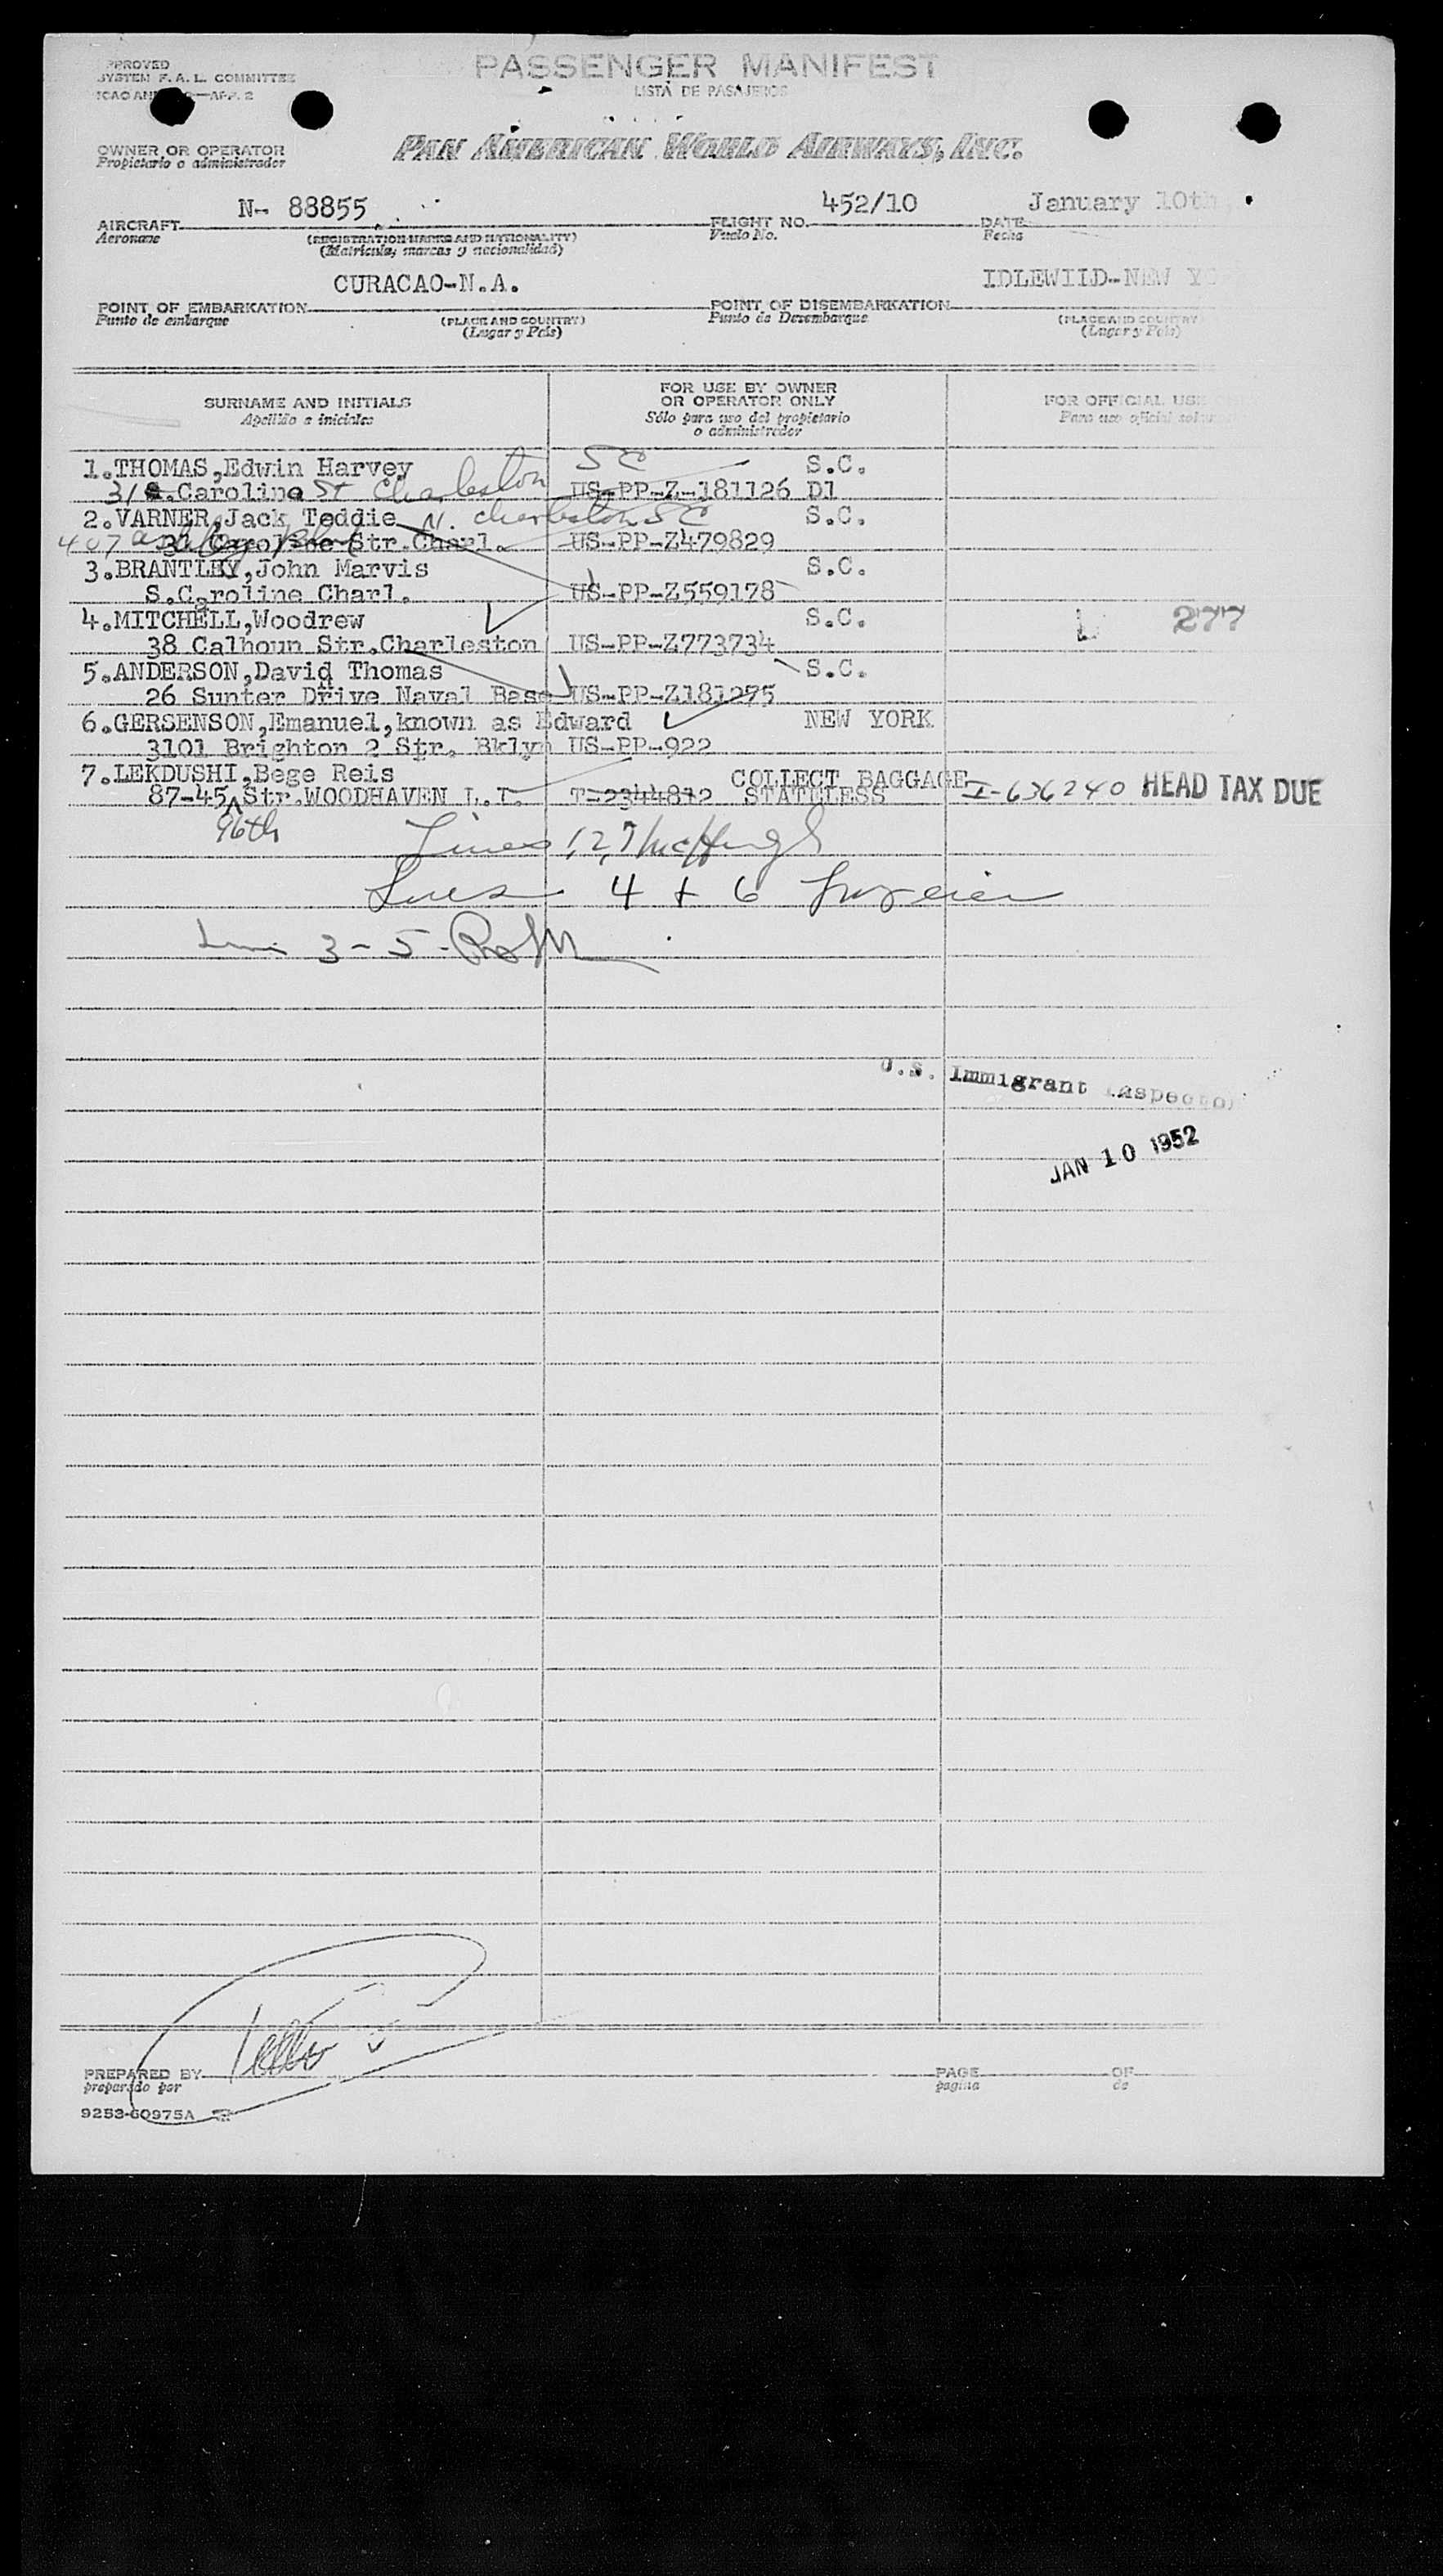 PPROVED
SYSTEM F.A.L. COMMITTEE
ICAO AN —APP. 2
PASSENGER MANIFEST
LISTA DE PASAJEROS
OWNER OR OPERATOR
Propietario o administrador
PAN AMERICAN WORLD AIRWAYS, INC.
AIRCRAFT N- 88855 FLIGHT NO. 452/10 DATE January 10th
Aeronave (REGISTRATION MARKS AND NATIONALITY) Vuelo No. Fecha
(Matricula, marcas y nacionalidad)
POINT OF EMBARKATION CURACAO-N.A. POINT OF DISEMBARKATION IDLEWILD-NEW YO
Punto de embarque (PLACE AND COUNTRY) Punto de Desembarque (PLACE AND COUNTRY
(Lugar y Pais) (Lugar y Pais)
SURNAME AND INITIALS FOR USE BY OWNER OR OPERATOR ONLY FOR OFFICIAL USE
Apellido e iniciales Sólo para uso del propietario o administrador Para uso oficial
1.THOMAS,Edwin Harvey SC S.C.
31 S.Carolina St Charleston US-PP-Z-181126 D1
2.VARNER,Jack Teddie N. Charleston SC S.C.
407 31 Caroline Str.Charl. US-PP-Z479829
3.BRANTLEY,John Marvis S.C.
S.Caroline Charl. US-PP-Z559178
4.MITCHELL,Woodrew S.C. L 277
38 Calhoun Str.Charleston US-PP-Z773734
5.ANDERSON,David Thomas S.C.
26 Sunter Drive Naval Base US-PP-Z181275
6.GERSENSON,Emanuel,known as Edward NEW YORK
3101 Brighton 2 Str. Bklyn US-PP-922
7.LEKDUSHI,Bege Reis COLLECT BAGGAGE
87-45 Str.WOODHAVEN L.I. T-2344812 STATELESS I-636240 HEAD TAX DUE
96th
Lines 1,2,7 McHugh
Lines 4 + 6
Line 3-5-
U.S. Immigrant Inspector
JAN 10 1952
PREPARED BY PAGE OF
preparado por pagina de
9253-60975A